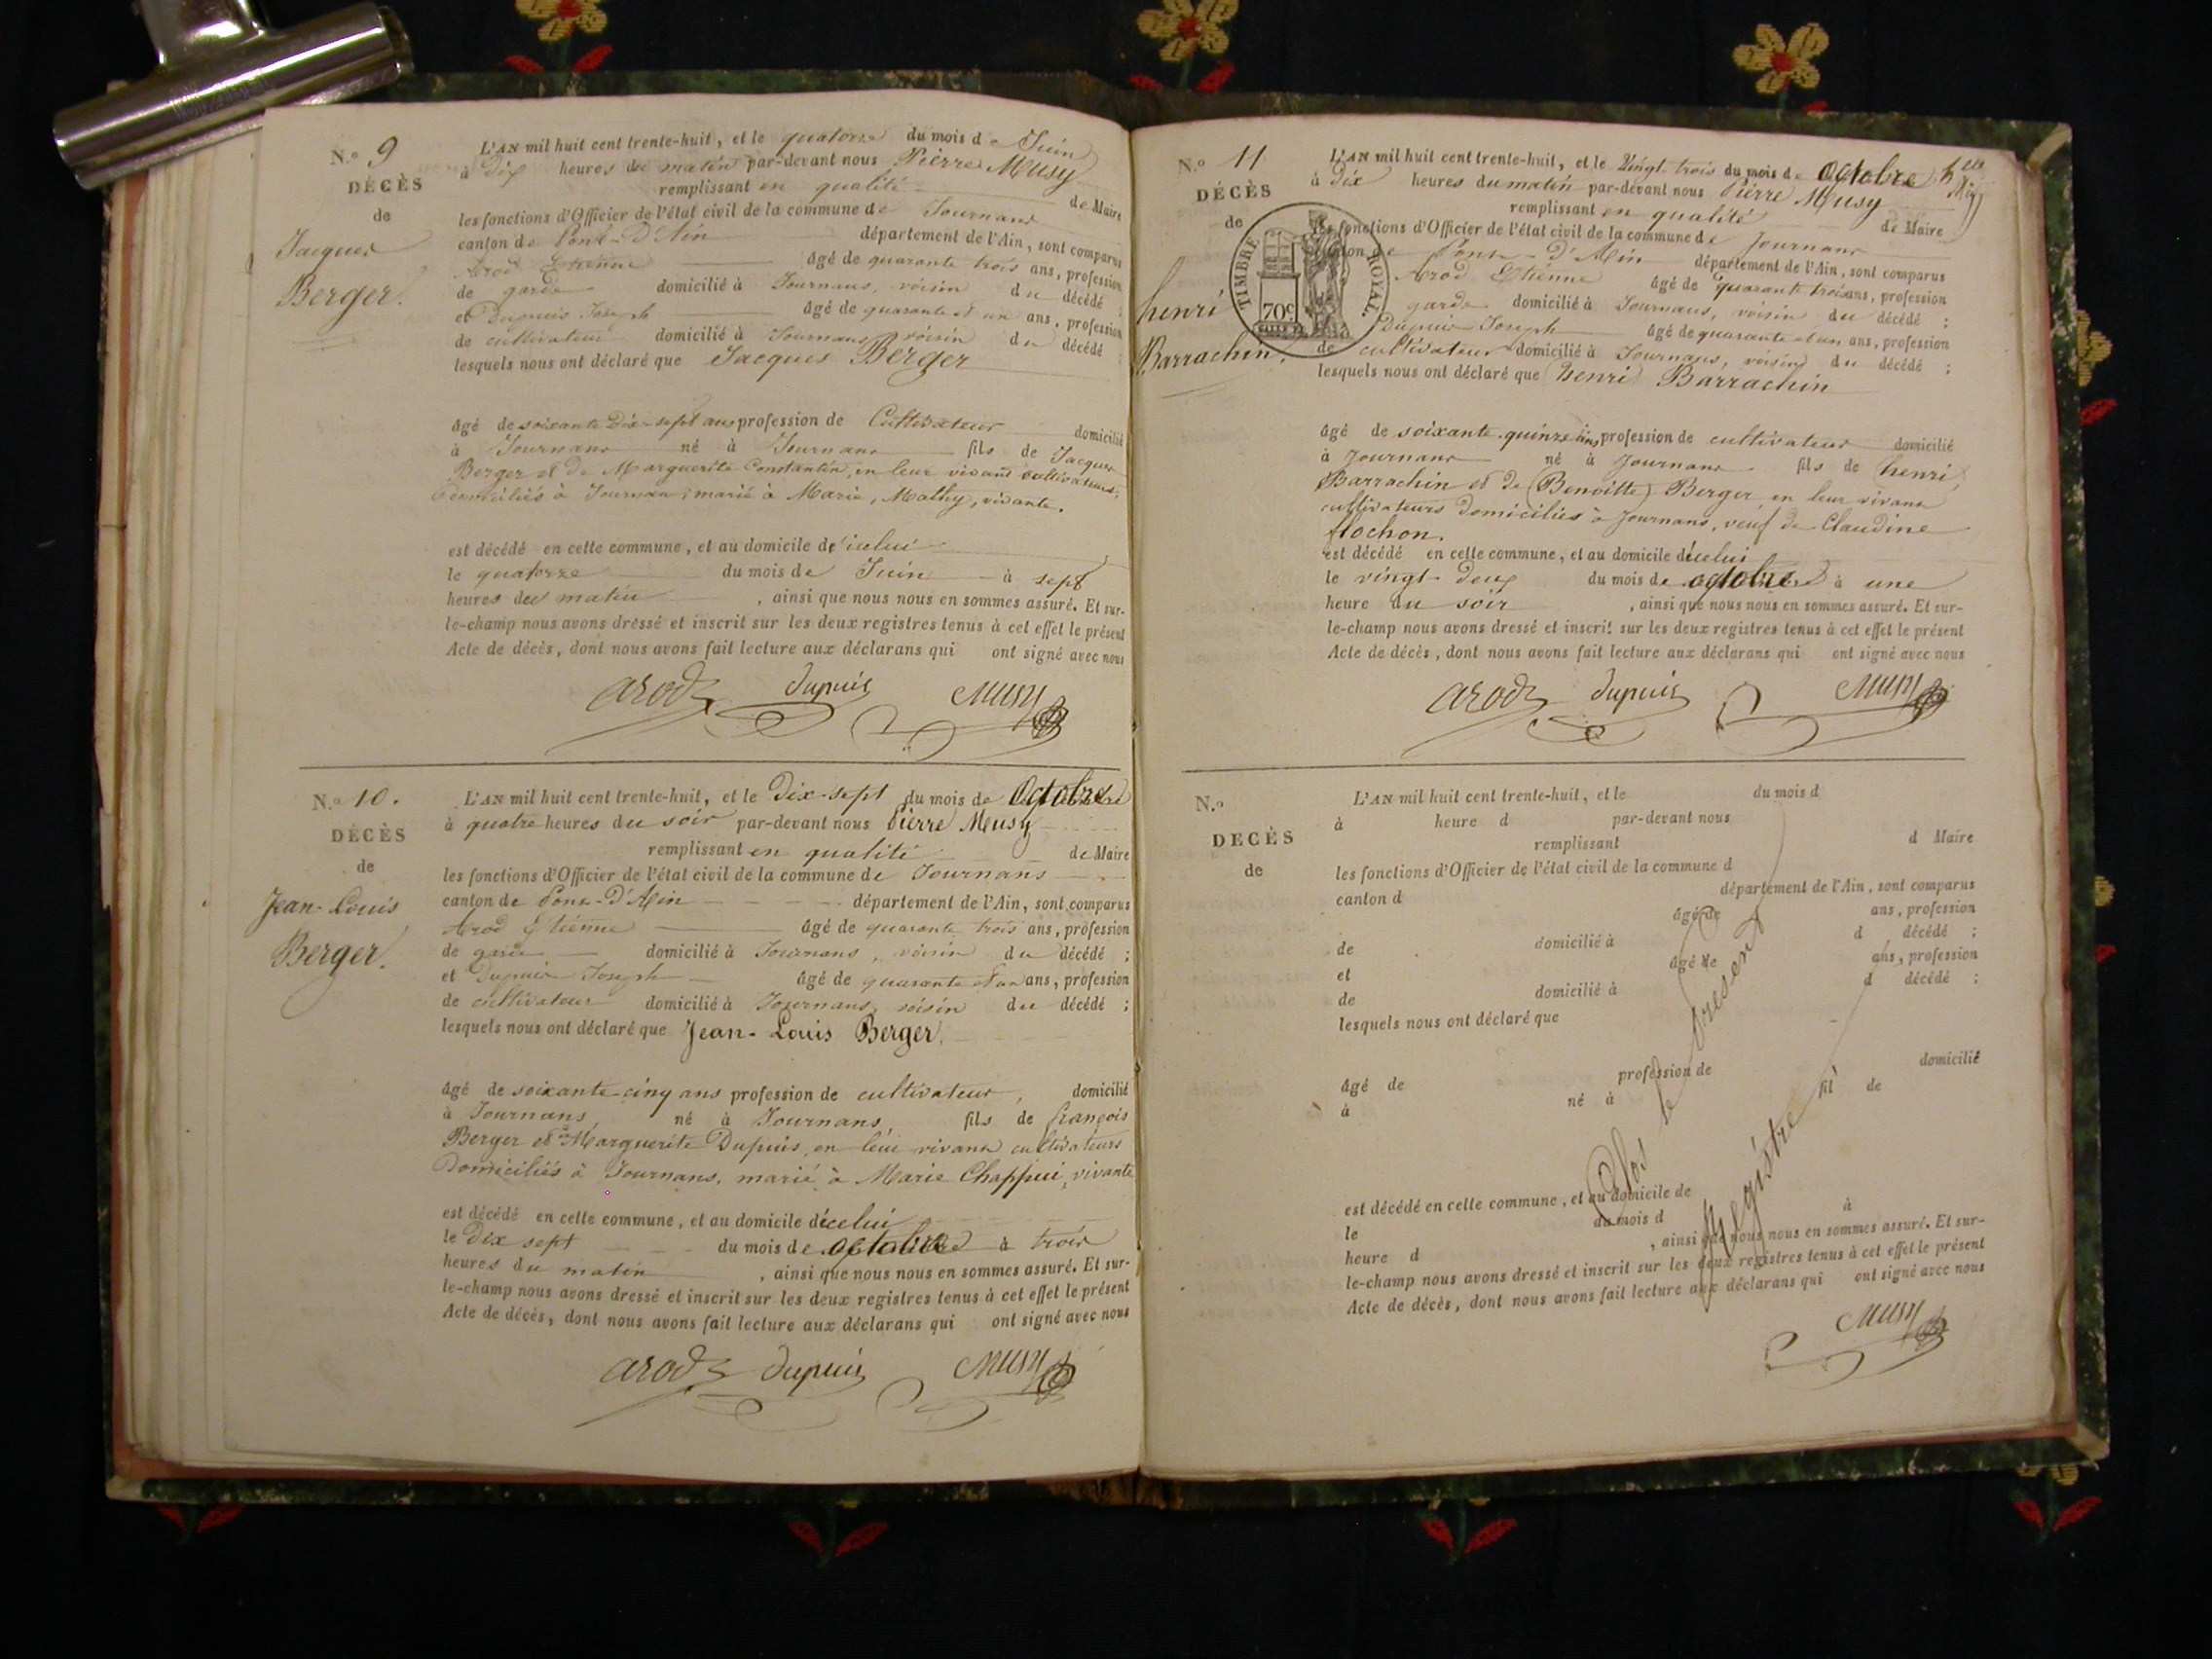 N.o 9
DÉCÈS
de
Jacques
Berger.
L'AN mil huit cent trente-huit, et le quatorze du mois de Juin
à Dix heures du matin par-devant nous Pierre Musy
remplissant en qualité de Maire
les fonctions d'Officier de l'état civil de la commune de Journans
canton de Pont-D'Ain département de l'Ain, sont comparus
Arod Etienne âgé de quarante trois ans, profession
de garde domicilié à Journans, voisin du décédé ;
et Dupuis Joseph âgé de quarante et un ans, profession
de cultivateur domicilié à Journans, voisin du décédé ;
lesquels nous ont déclaré que Jacques Berger
âgé de soixante Dix-sept ans profession de Cultivateur domicilié
à Journans né à Journans fils de Jacques
Berger et de Marguerite Constantin, en leur vivant cultivateurs,
Domiciliés à Journans, marié à Marie, Mathy, vivante.
est décédé en cette commune, et au domicile d'icelui
le quatorze du mois de Juin à sept
heures du matin , ainsi que nous nous en sommes assuré. Et sur-
le-champ nous avons dressé et inscrit sur les deux registres tenus à cet effet le présent
Acte de décès, dont nous avons fait lecture aux déclarans qui ont signé avec nous
arod dupuis Musy
N.o 10.
DÉCÈS
de
Jean-Louis
Berger.
L'AN mil huit cent trente-huit, et le Dix-sept du mois de Octobre
à quatre heures du soir par-devant nous Pierre Musy
remplissant en qualité de Maire
les fonctions d'Officier de l'état civil de la commune de Journans
canton de Pont-D'Ain département de l'Ain, sont comparus
Arod Etienne âgé de quarante trois ans, profession
de garde domicilié à Journans, voisin du décédé ;
et Dupuis Joseph âgé de quarante et un ans, profession
de cultivateur domicilié à Journans, voisin du décédé ;
lesquels nous ont déclaré que Jean-Louis Berger,
âgé de soixante-cinq ans profession de cultivateur, domicilié
à Journans, né à Journans, fils de françois
Berger et de Marguerite Dupuis, en leur vivant cultivateurs
Domiciliés à Journans, marié à Marie Chappui, vivante
est décédé en cette commune, et au domicile d'icelui
le Dix sept du mois de octobre à trois
heures du matin , ainsi que nous nous en sommes assuré. Et sur-
le-champ nous avons dressé et inscrit sur les deux registres tenus à cet effet le présent
Acte de décès, dont nous avons fait lecture aux déclarans qui ont signé avec nous
arod dupuis Musy
N.o 11
DÉCÈS
de
henri
Barrachin.
TIMBRE ROYAL
70c
L'AN mil huit cent trente-huit, et le Vingt-trois du mois de Octobre
à Dix heures du matin par-devant nous Pierre Musy
remplissant en qualité de Maire
les fonctions d'Officier de l'état civil de la commune de Journans
canton de Pont-D'Ain département de l'Ain, sont comparus
Arod Etienne âgé de quarante trois ans, profession
garde domicilié à Journans, voisin du décédé ;
Dupuis Joseph âgé de quarante et un ans, profession
de cultivateur domicilié à Journans, voisin du décédé ;
lesquels nous ont déclaré que henri Barrachin
âgé de soixante-quinze ans, profession de cultivateur domicilié
à Journans né à Journans fils de henri,
Barrachin et de (Benoitte) Berger en leur vivant
cultivateurs Domiciliés à Journans, veuf de Claudine
flochon.
est décédé en cette commune, et au domicile d'icelui
le vingt-deux du mois de octobre à une
heure du soir , ainsi que nous nous en sommes assuré. Et sur-
le-champ nous avons dressé et inscrit sur les deux registres tenus à cet effet le présent
Acte de décès, dont nous avons fait lecture aux déclarans qui ont signé avec nous
arod dupuis Musy
N.o
DÉCÈS
de
L'AN mil huit cent trente-huit, et le du mois d
à heure d par-devant nous
remplissant d Maire
les fonctions d'Officier de l'état civil de la commune d
canton d département de l'Ain, sont comparus
âgé de ans, profession
de domicilié à d décédé ;
et âgé de ans, profession
de domicilié à d décédé ;
lesquels nous ont déclaré que
âgé de profession de domicilié
à né à fil de
est décédé en cette commune, et au domicile de
le du mois d à
heure d , ainsi que nous nous en sommes assuré. Et sur-
le-champ nous avons dressé et inscrit sur les deux registres tenus à cet effet le présent
Acte de décès, dont nous avons fait lecture aux déclarans qui ont signé avec nous
Clos le présent
Registre
Musy